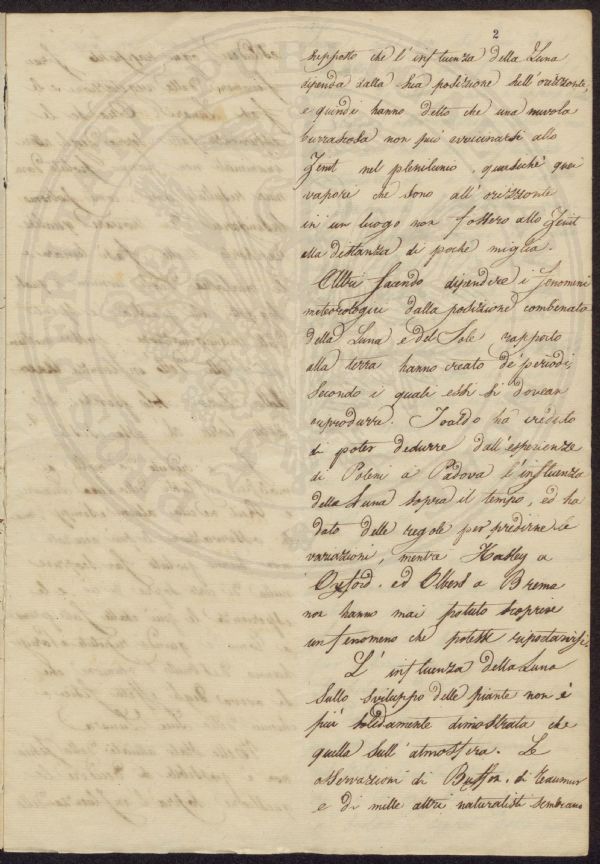 2
supposto che l'influenza della Luna
dipenda dalla sua posizione sull'orizzonte,
e quindi hanno detto che una nuvola
burrascosa non può avvicinarsi allo
Zenit nel plenilunio, quasichè quei
vapori che sono all'orizzonte
in un luogo non fossero allo Zenit
alla distanza di poche miglia.
Altri facendo dipendere i fenomeni
meteorologici dalla posizione combinata
della Luna e del Sole rapporto
alla terra hanno creato de' periodi,
secondo i quali essi si dovean
riprodurre. Toaldo ha creduto
di poter dedurre dall'esperienze
di Poleni a Padova l'influenza
della Luna sopra il tempo, ed ha
dato delle regole per predirne le
variazioni, mentre Halley a
Oxford. ed Olbers a Brema
non hanno mai potuto scoprire
un fenomeno che potesse riportarvisi.
L'influenza della Luna
sullo sviluppo delle piante non è
più solidamente dimostrata che
quella sull'atmosfera. Le
osservazioni di Buffon, di Reaumur
e di mille altri naturalisti sembrano